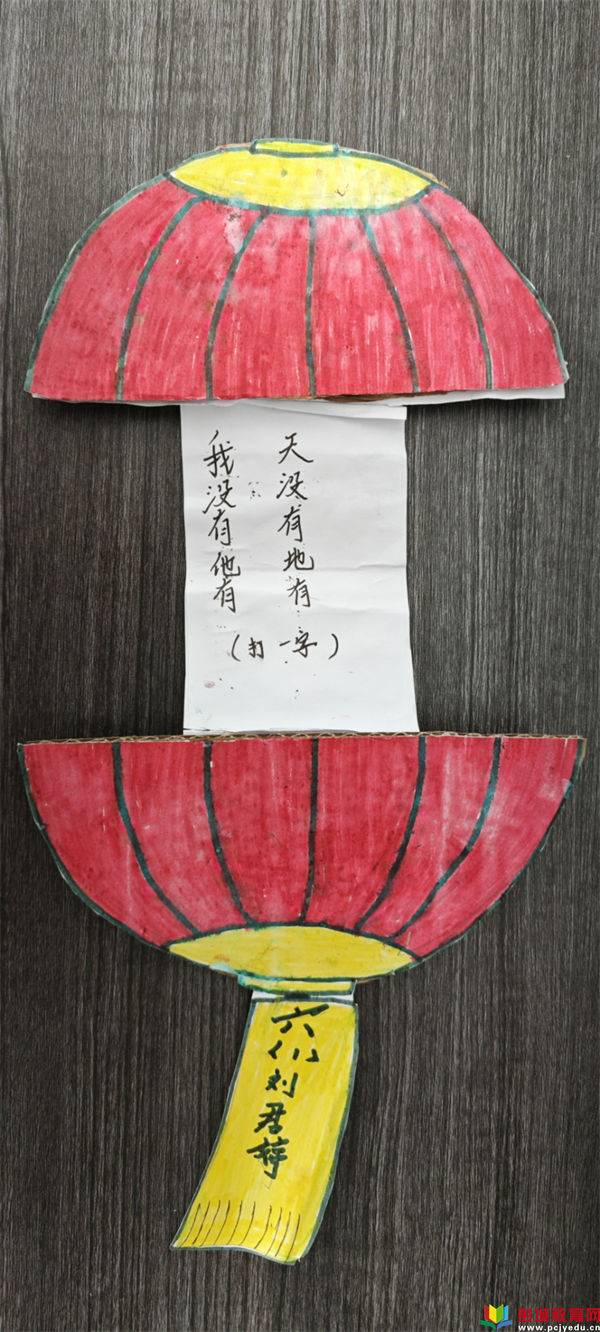 天没有地有
我没有他有
（打一字）
六（1）刘君婷
彭城教育网
www.pcjyedu.cn